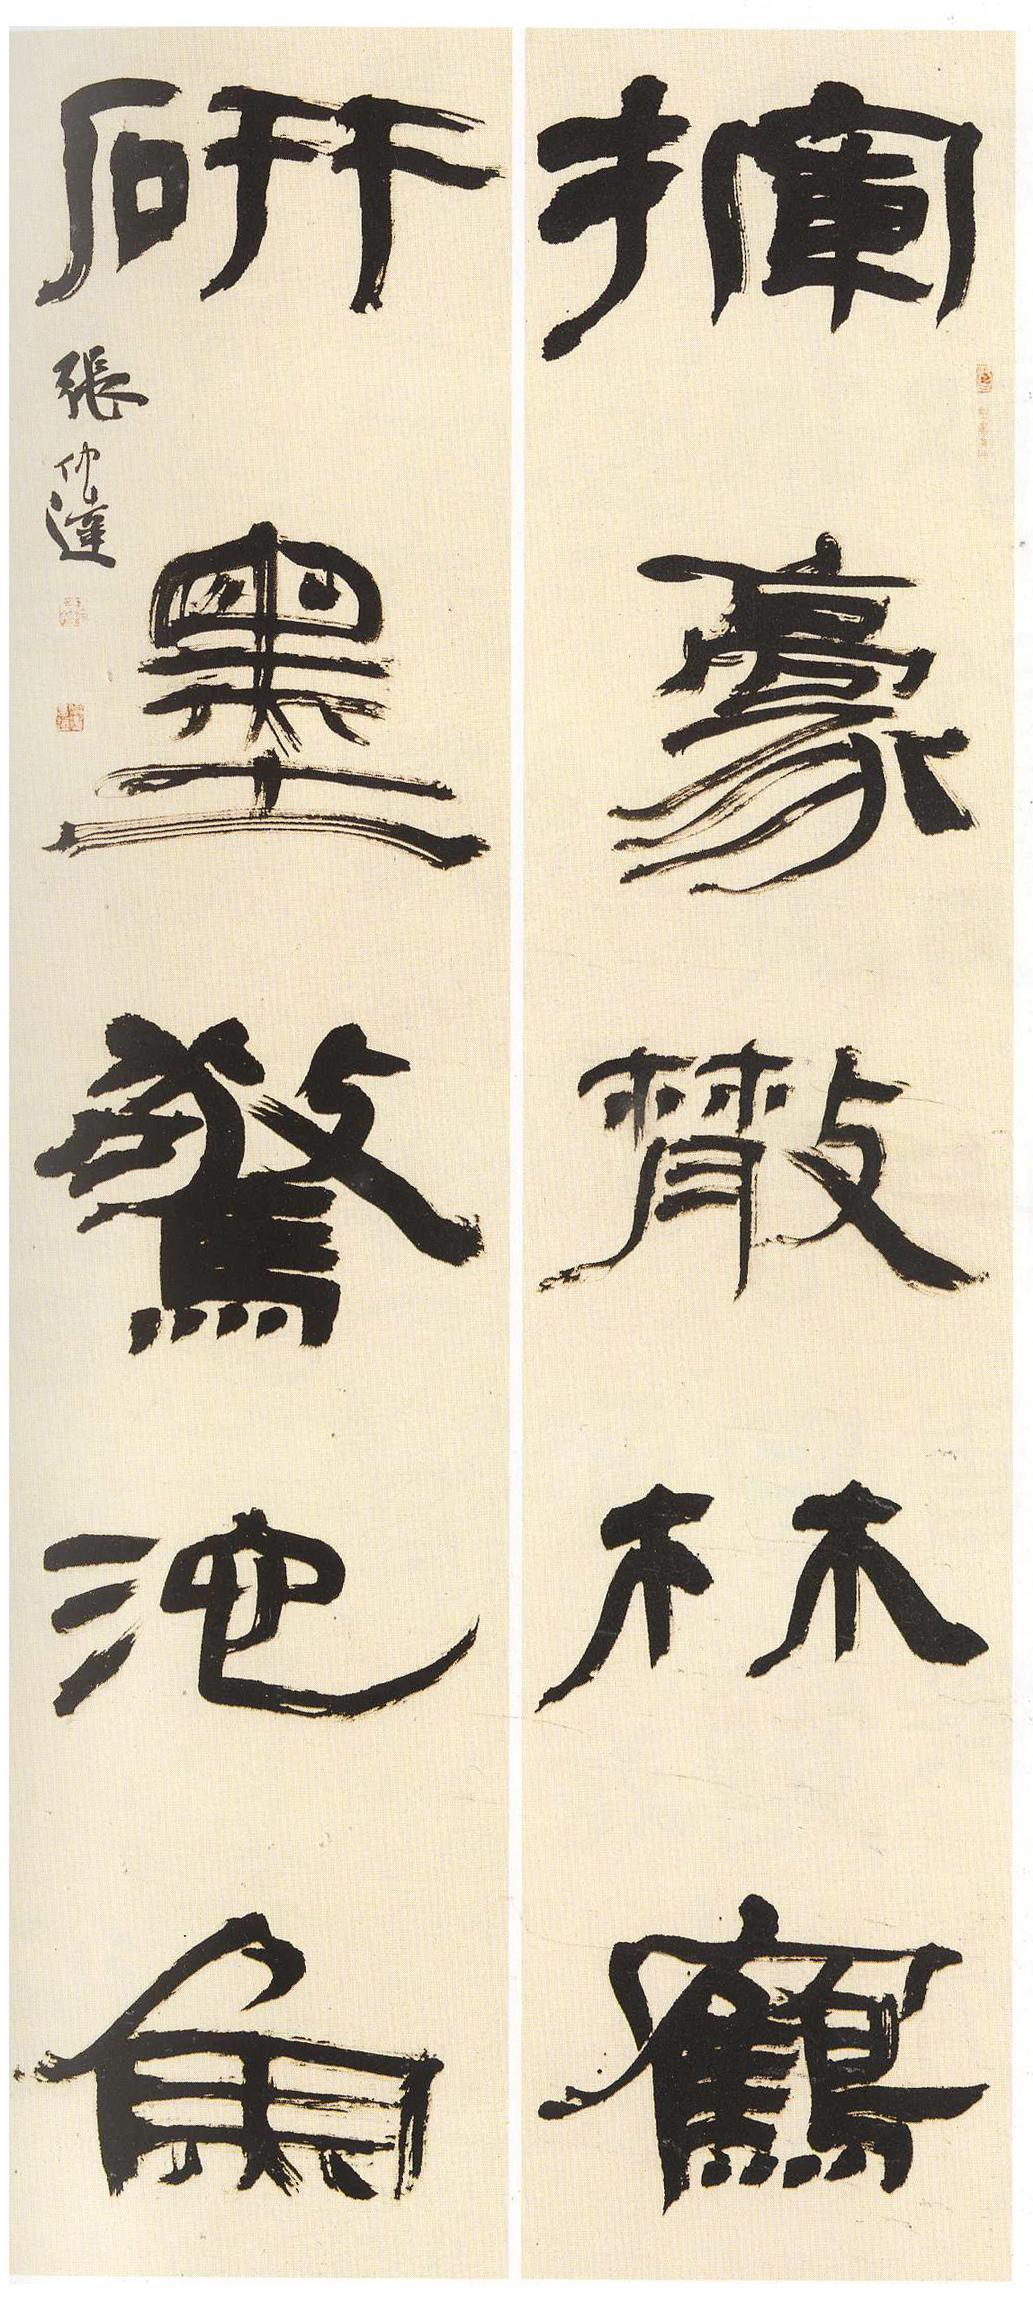 揮豪散林鶴
研墨驚池魚
張仲達